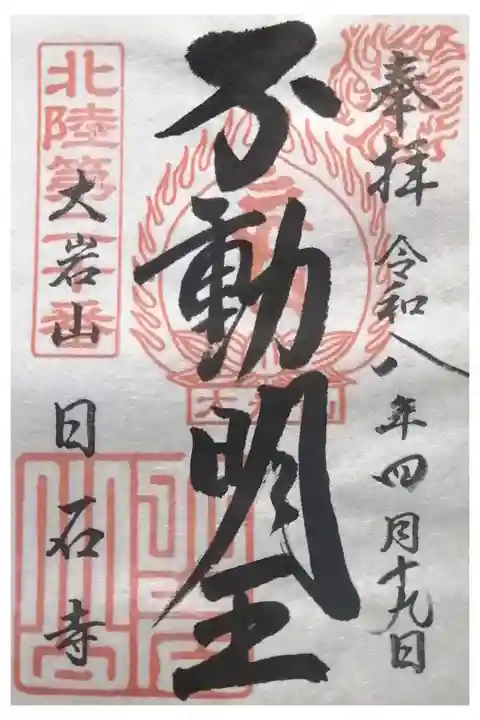 奉拝 令和八年四月十九日
不動明王
大岩山 日石寺
北陸第二十番
大岩山